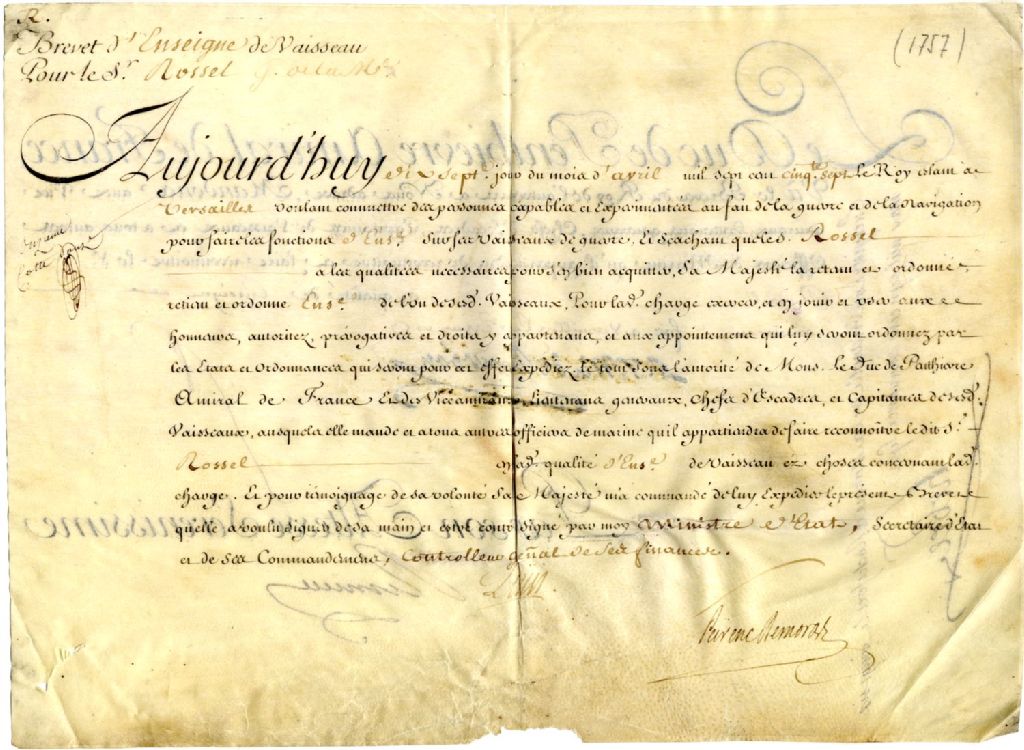 R.
Brevet d'Enseigne de Vaisseau
Pour le Sr. Rossel G. de la Mne
(1757)
Aujourd'huy dix Sept jour du mois d'avril mil sept cent cinqte sept le Roy estant a
Versailles voulant commettre des personnes capables et Experimentées au fait de la guerre et de la Navigation
pour faire les fonctions d'Ense Sur ses Vaisseaux de guerre, Et sçachant que le S. Rossel
a les qualitées necessaires pour s'y bien acquitter, Sa Majesté la retenu et ordonné
retient et ordonne Ense de l'un de sesd. Vaisseaux, Pour lad. charge exercer, et en jouir et user aux
honneurs, autoritez, prérogatives et droits y appartenans, et aux appointemens qui luy seront ordonnez par
les Etats et Ordonnances qui seront pour cet effet Expediez, le tout sous l'autorité de Mons. le Duc de Penthievre
Amiral de France Et des Viceamiraux, Lieutenans generaux, Chefs d'Escadres, et Capitaines de sesd.
Vaisseaux, ausquels elle mande et a tous autres officiers de marine qu'il appartiendra de faire reconnoître le dit S.
Rossel en lad. qualité d'Ense de Vaisseau ez choses concernant lad.
charge. Et pour témoignage de sa volonté Sa Majesté m'a commandé de luy Expedier le present Brevet
qu'elle a voulu signer de sa main et estre contresigné par moy Ministre d'Etat, Secretaire d'Etat
et de Ses Commandemens, Controlleur gñal de Ses finances.
Louis
Peirenc de Moras